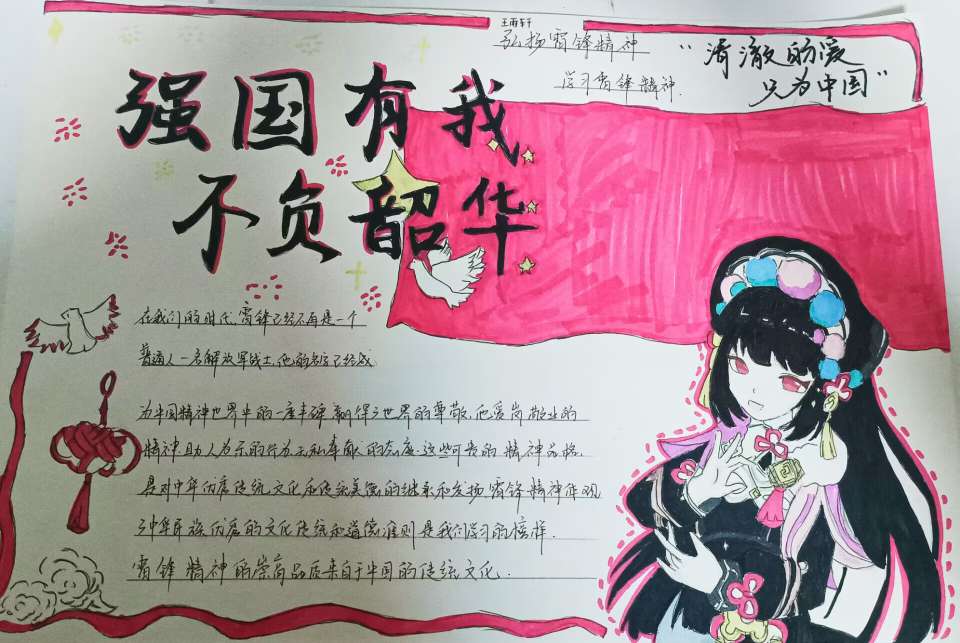 王雨轩
弘扬雷锋精神
学习雷锋精神.
"清澈的爱
只为中国"
强国有我
不负韶华
在我们的时代,雷锋已经不再是一个
普通人一名解放军战士,他的名字已经成
为中国精神世界中的一座丰碑,赢得了世界的尊敬.他爱岗敬业的
精神.助人为乐的行为.无私奉献的态度.这些可贵的精神品格.
是对中华优唐传统文化和传统美德的继承和发扬.雷锋精神体现
了中华民族优唐的文化传统和道德准则是我们学习的榜样.
雷锋精神的崇高品质来自于中国的传统文化.